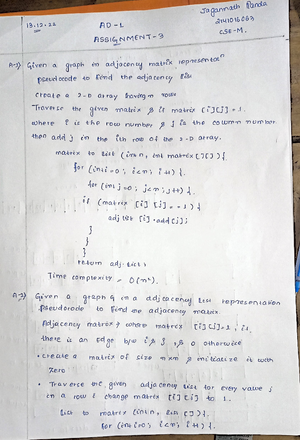 13.12.22
AD-1
Jagannath Panda
2141016063
CSE-M.
ASSIGNMENT-3
A-1) Given a graph in adjacency matrix representatⁿ
pseudocode to find the adjacency list
Create a 2-D array having n rows
Traverse the given matrix & if matrix [i][j] = 1.
where i is the row number & j is the column number
then add j in the ith row of the 2-D array.
matrix to list (int n, int matrix [][]){
for (int i=0; i<n; i++) {
for (int j=0; j<n; j++) {
if (matrix [i] [j] == 1) {
adj list [i].add(j);
}
}
}
return adj. list;
Time complexity = O(n²).
A-2) Given a graph G in a adjacency list representation
Pseudocode to find the adjacency matrix
Adjacency matrix where matrix [i][j]=1, if
there is an edge b/w i & j, & 0 otherwise
• create a matrix of size n×n & initialize it with
zero
• Traverse the given adjacency list for every value j
in a row i change matrix [i][j] to 1.
list to matrix (int n, list []){
for (int i=0; i<n; i++) {